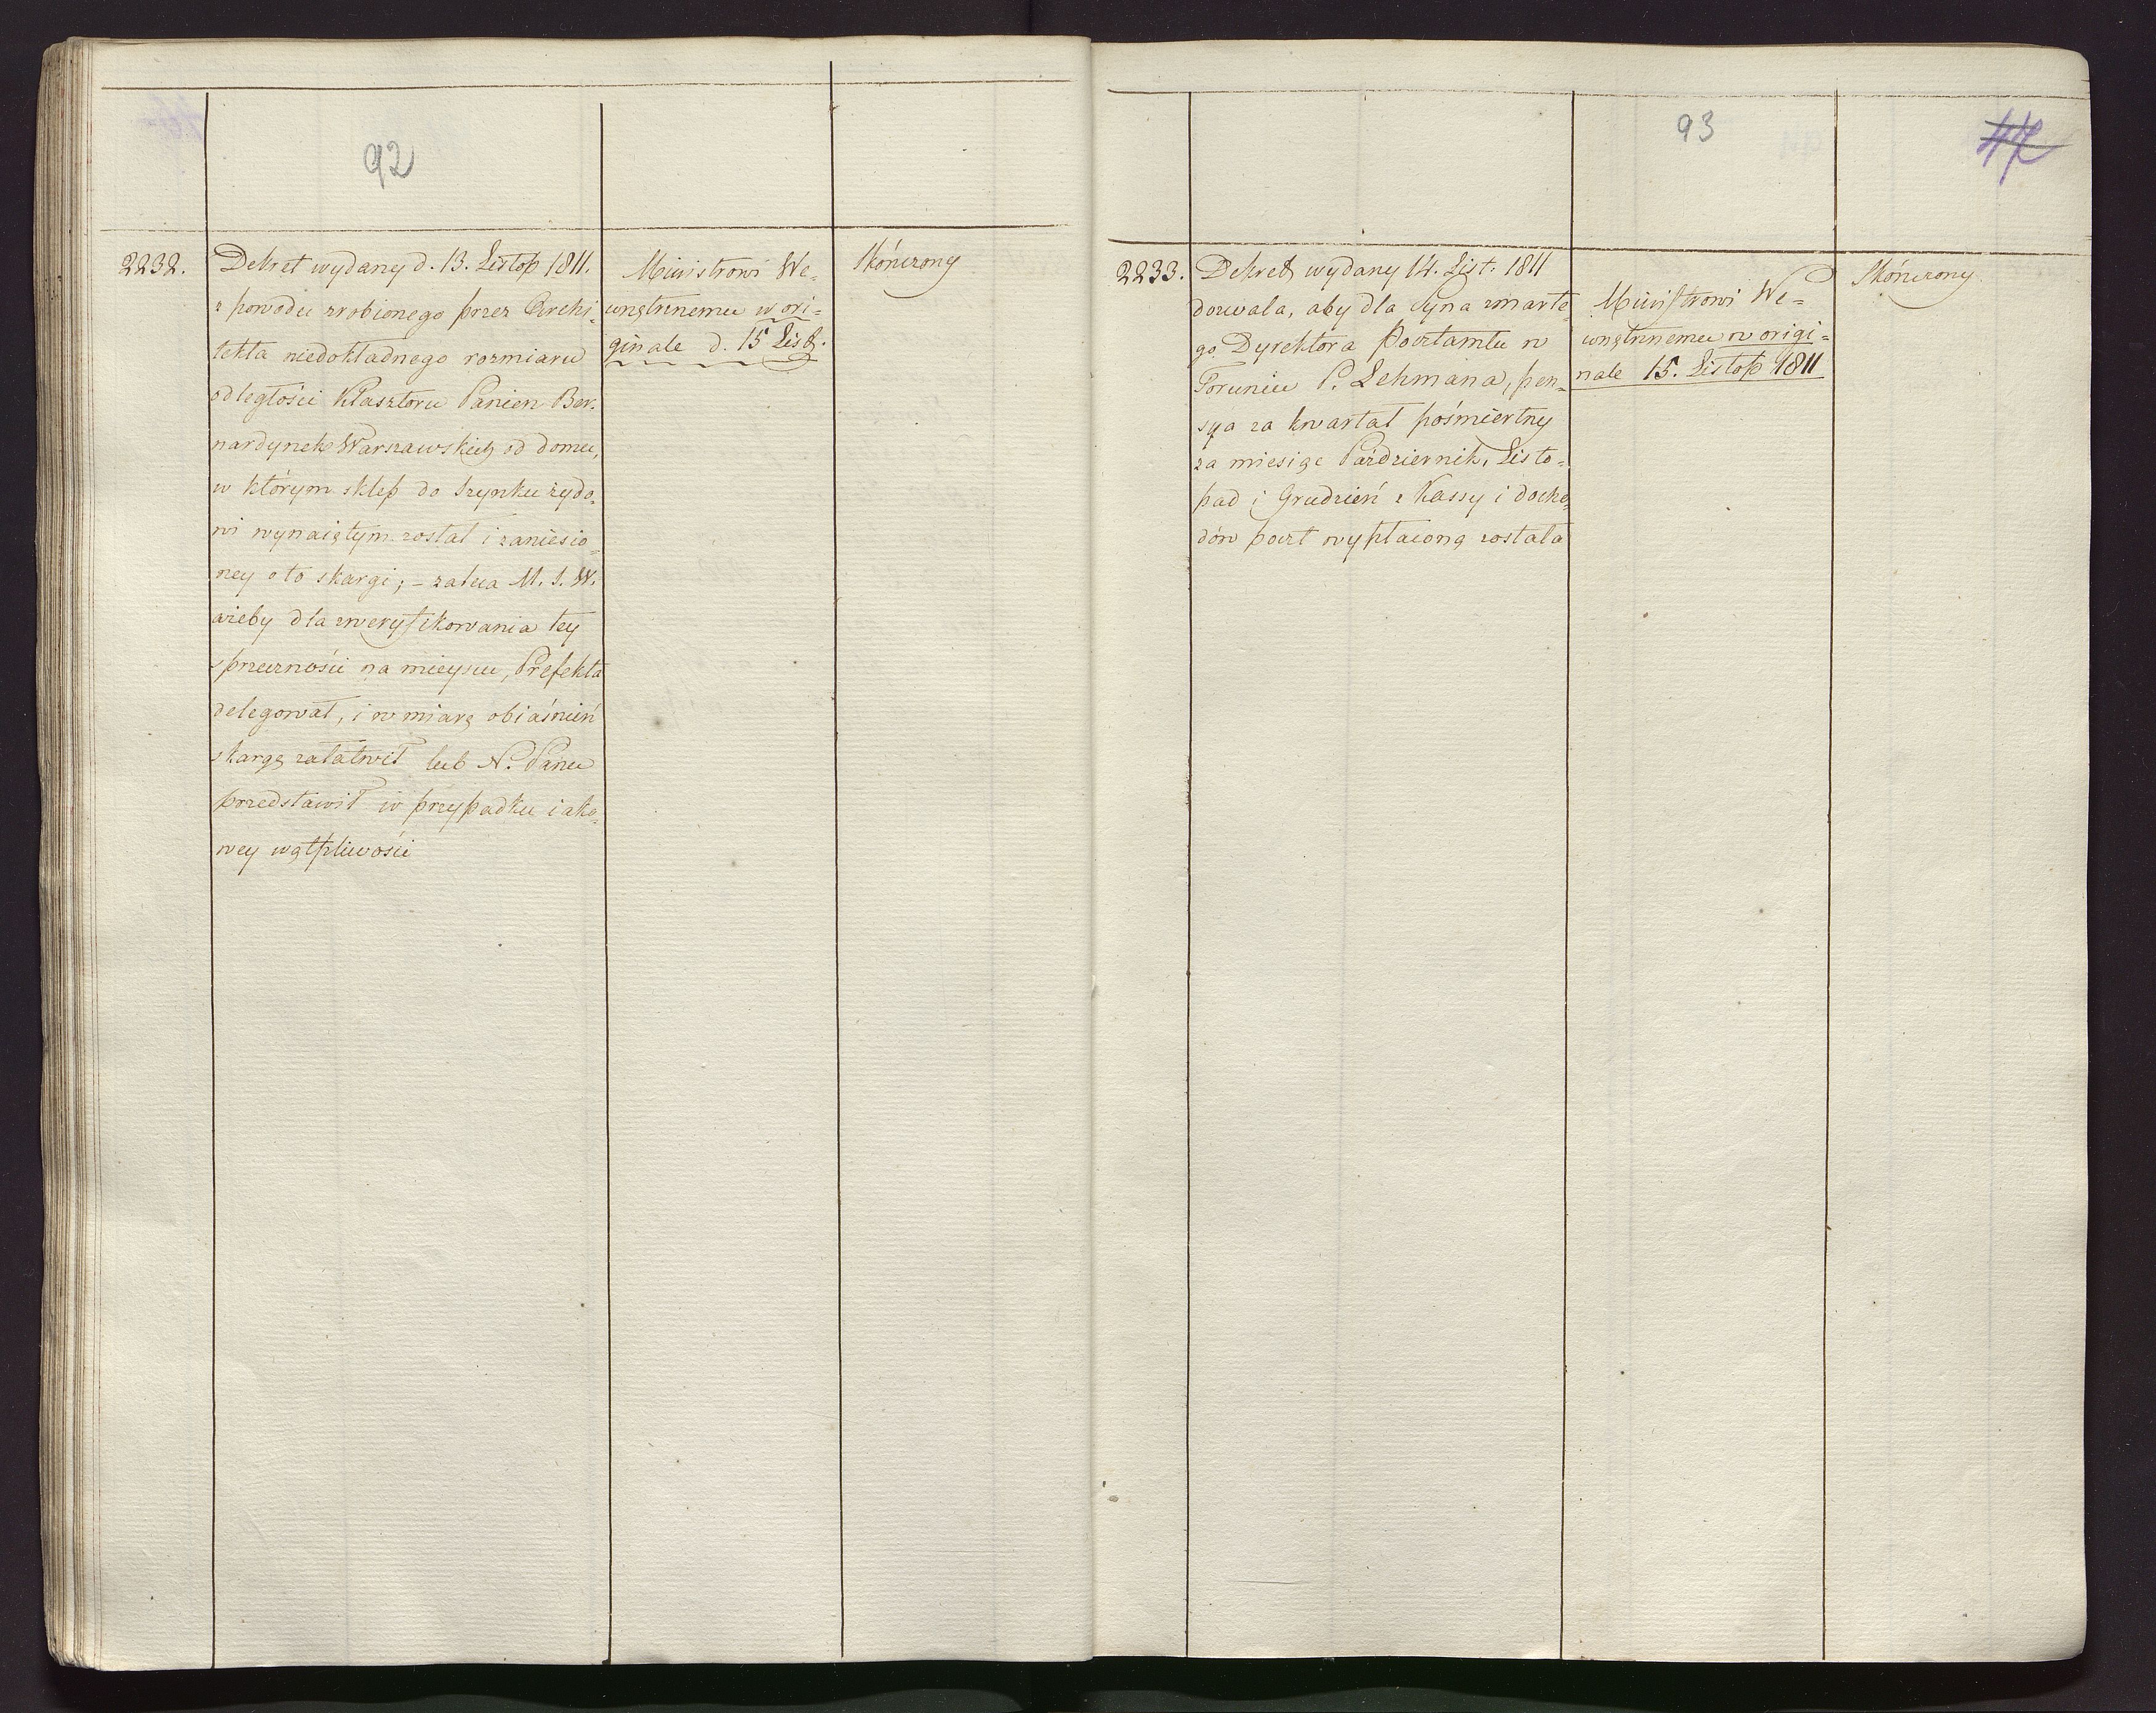 92
2232.
Dekret wydany d. 13. Listop 1811.
z powodu zrobionego przez Archi-
tekta niedokładnego rozmiaru
odległości Klasztoru Panien Ber-
nardynek Warszawskich od domu,
w którym sklep do szynku żydo-
wi wynaiętym został i zaniesio-
ney o to skargi; – zaleca M. S. W.
ażeby dla zweryfikowania tey
sprzeczności na mieyscu, Prefekta
delegował, i w miarę obiaśnień
skargę załatwił lub N. Panu
przedstawił w przypadku iako-
wey wątpliwości
Ministrowi We-
wnętrznemu w ori-
ginale d. 15 List.
Skończony
93
47
2233.
Dekret wydany 14. List. 1811
dozwala, aby dla syna zmarłe-
go Dyrektora Pocztamtu w
Toruniu P. Lehmana, pen-
sya za kwartał pośmiertny
za miesiąc Październik, Listo-
pad i Grudzień z Kassy i docho-
dów poczt wypłaconą została
Ministrowi We-
wnętrznemu w origi-
nale 15. Listop 1811
Skończony